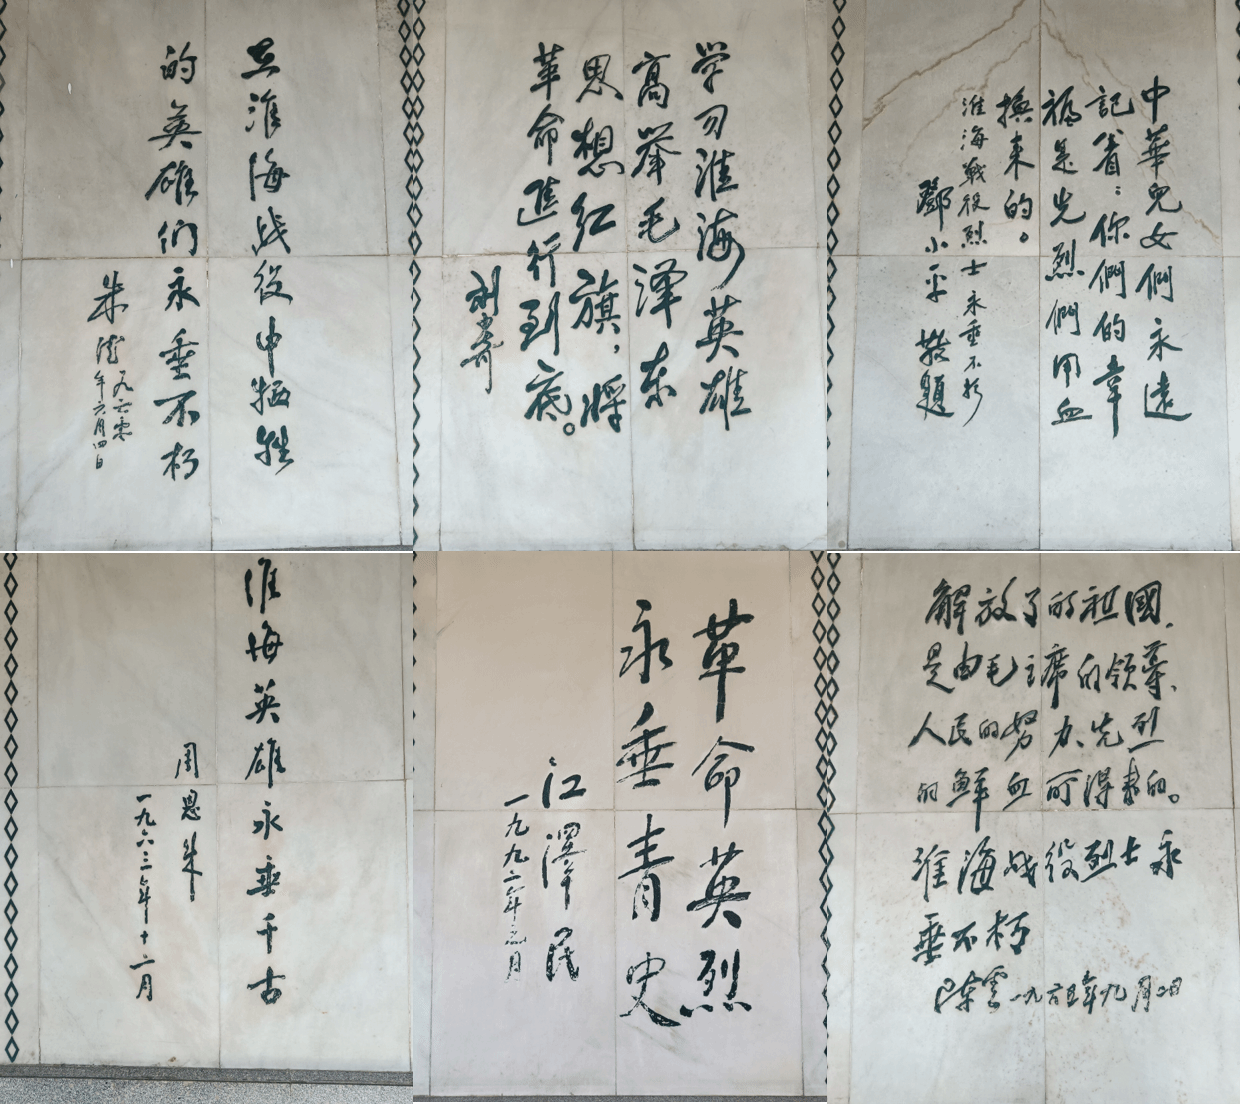 在淮海战役中牺牲
的英雄们永垂不朽
朱德
一九六零
年六月四日
学习淮海英雄
高举毛泽东
思想红旗，将
革命进行到底。
刘少奇
中華兒女們永遠
記着：你們的幸
福是先烈們用血
換来的。
淮海戰役烈士永垂不朽
鄧小平 敬題
淮海英雄永垂千古
周恩来
一九六三年十二月
革命英烈
永垂青史
江澤民
一九九二年三月
解放了的祖國、
是由毛主席的领導、
人民的努力、先烈
的鮮血所得来的。
淮海战役烈士永
垂不朽
陈雲 一九六五年九月二日